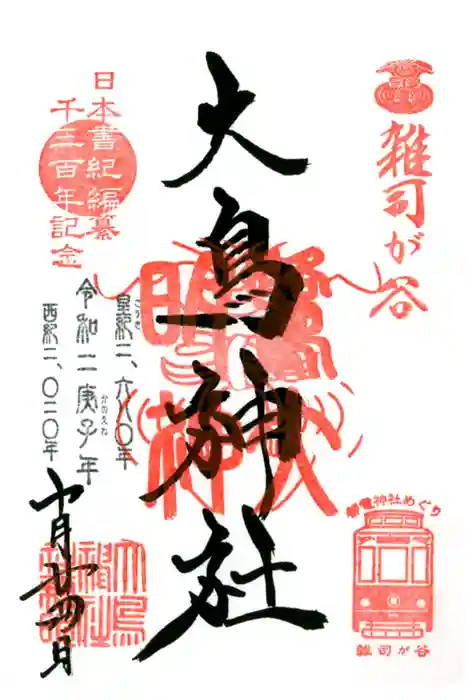 雑司が谷
大鳥神社
日本書紀編纂
千三百年記念
皇紀二、六八〇年
こうき
令和二庚子年
かのえね
西紀二、〇二〇年
十月廿四日
大鳥
神社
都電神社めぐり
雑司が谷